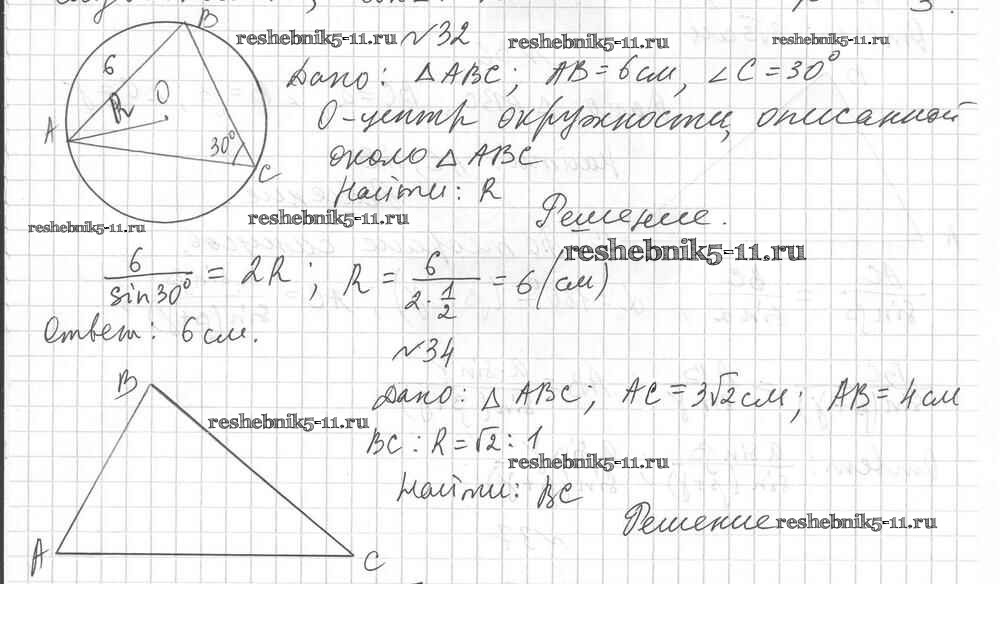 B
reshebnik5-11.ru №32 reshebnik5-11.ru reshebnik5-11.ru
Дано: △ABC; AB=6см, ∠C=30°
6
R O
A 30° C
O-центр окружности, описанной
около △ABC
Найти: R
reshebnik5-11.ru reshebnik5-11.ru Решение.
reshebnik5-11.ru
6/sin30° = 2R; R = 6/(2·1/2) = 6 (см)
Ответ: 6 см.
№34
B
Дано: △ABC; AC=3√2см; AB=4см
reshebnik5-11.ru
BC:R=√2:1
reshebnik5-11.ru
Найти: BC
Решение reshebnik5-11.ru
A C